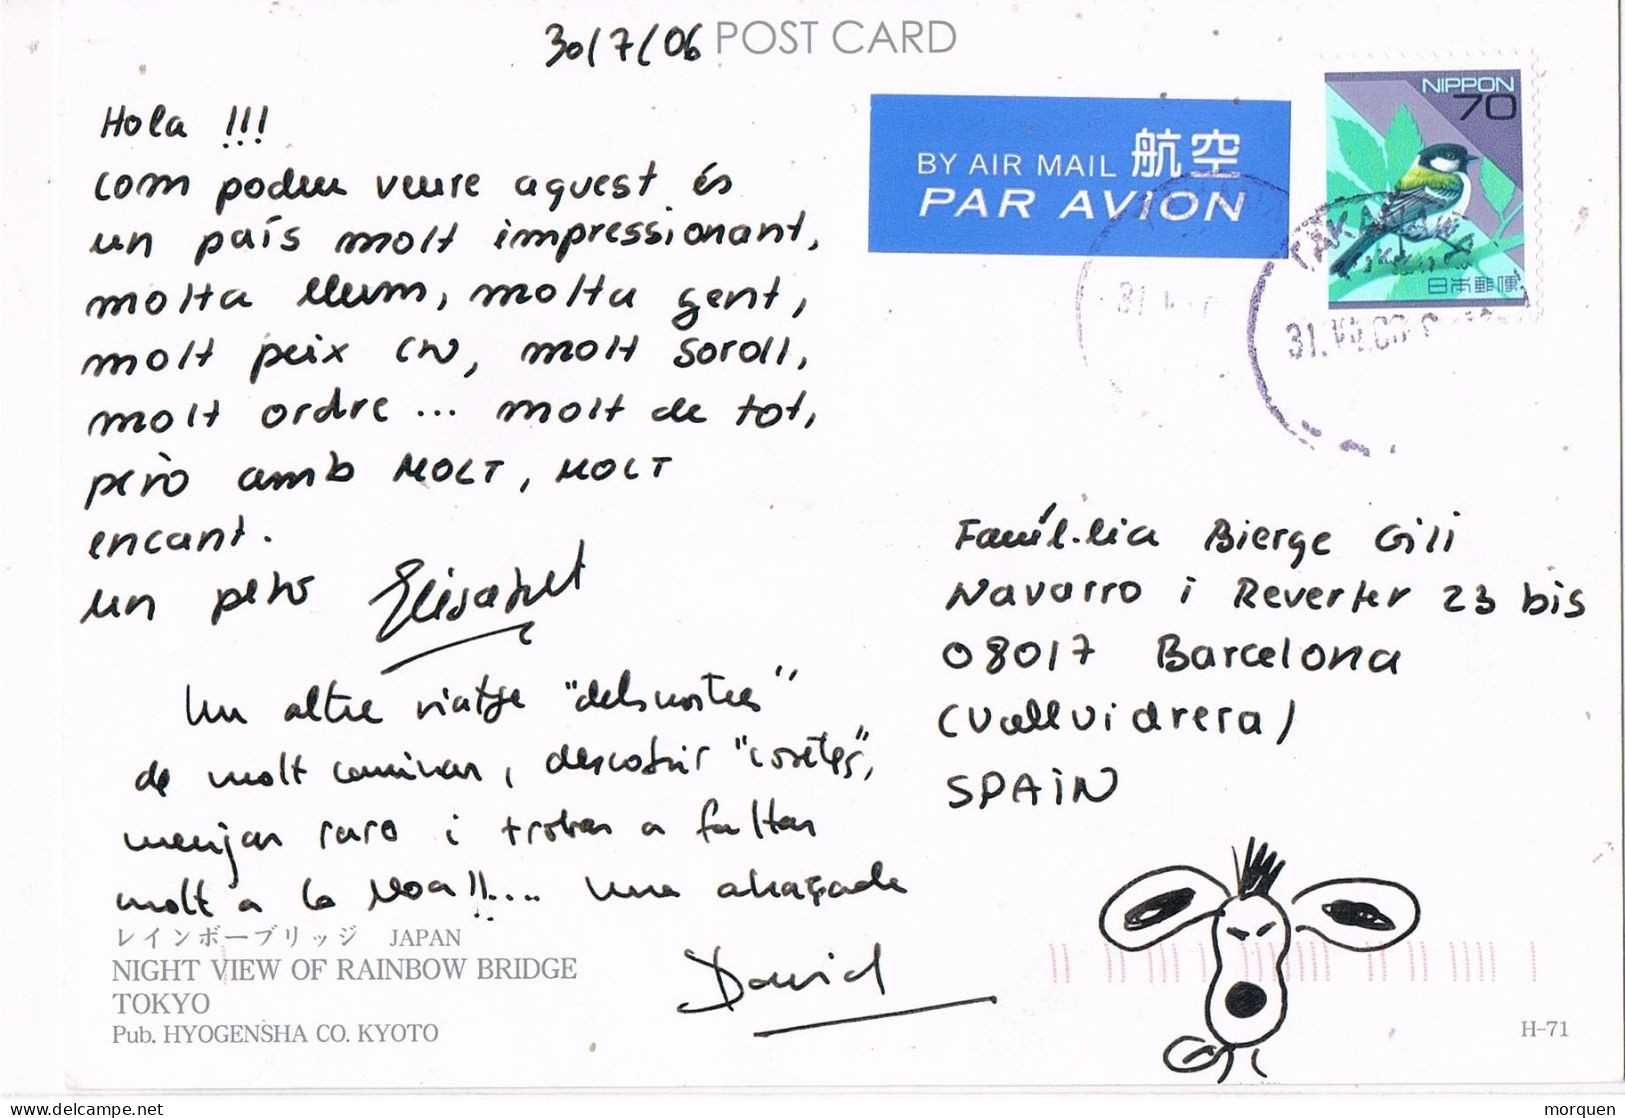 30/7/06 POST CARD
Hola !!!
com podeu veure aquest és
un país molt impressionant,
molta llum, molta gent,
molt peix cru, molt soroll,
molt ordre... molt de tot,
però amb MOLT, MOLT
encant.
un petó Elisabet
Un altre viatge "dels nostres"
de molt caminar, descobrir "cosetes",
menjar raro i trobar a faltar
molt a la Noa!!.... Una abraçada
David
BY AIR MAIL 航空
PAR AVION
NIPPON
70
日本郵便
TAKAYAMA
31. VII. 06
Famíl·lia Bierge Gili
Navarro i Reverter 23 bis
08017 Barcelona
(Vallvidrera)
SPAIN
レインボーブリッジ JAPAN
NIGHT VIEW OF RAINBOW BRIDGE
TOKYO
Pub. HYOGENSHA CO. KYOTO
H-71
morquen